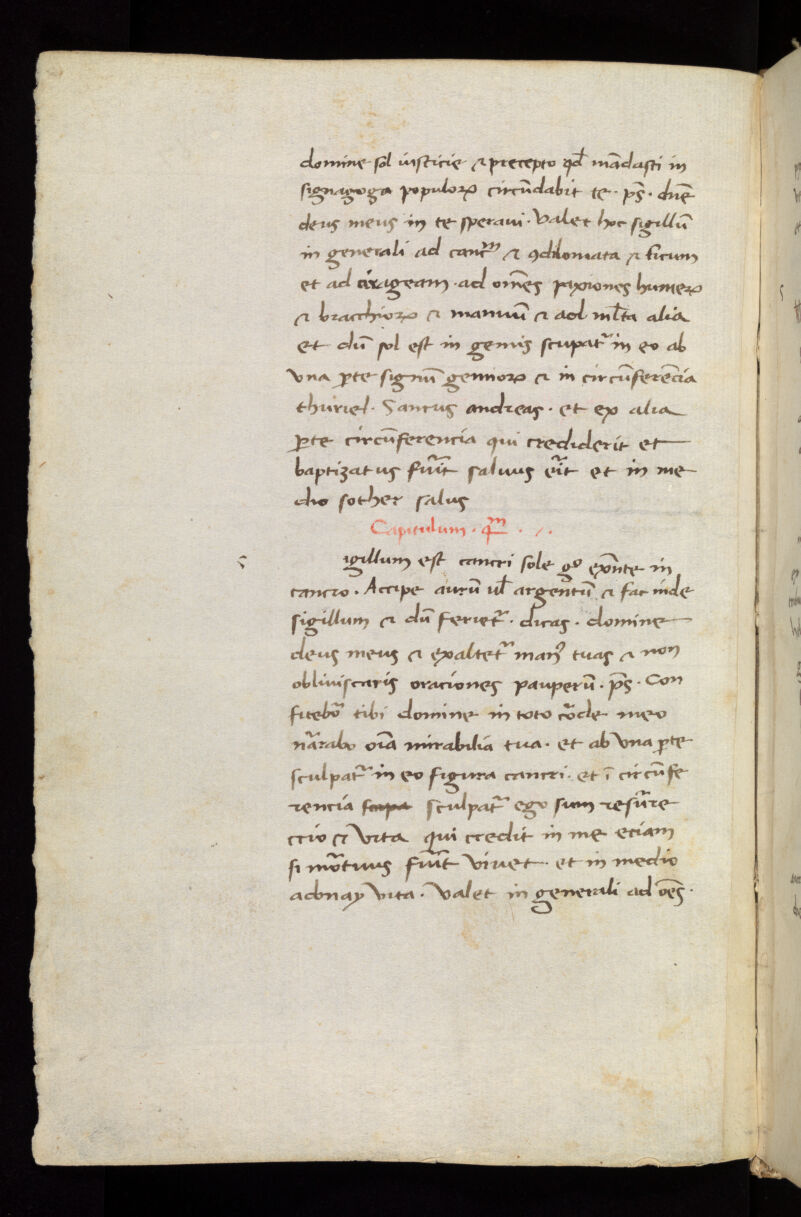 domine sol iusticie & precepto qđ mādasti in
signagoga populoꝝ circūdabit te · ps̄ · dn̄e
deus meus in te speraui · Valet hoc sigillū
in generali ad & ꝯdilomata & ficum
et ad · ad om̄es paxiones humeroꝝ
& bracchioꝝ & manuum & ad ml̄ta alia
et dū sol est in gemis scupat᷑ in eo ab
vna ꝑte signū geminoꝝ & in circūferēcia
thuriel · Sanctus andreas · et ex alia
ꝑte circūferencia qui crediderit et
baptizatus fu᷑it saluus e᷑it et in me
dio sother salus
Capitulum · qr̄m · / ·
s
igillum est cancri sole gͦ exn̄te in
cancro · Accipe aurū ul̄ argentū & fac inde
sigillum & dū feriet᷑ · dicas · domine
deus meus & exaltet᷑ manꝰ tuas & non
obliuiscaris oraciones pauperū · ps̄ · Con
fitebo᷑ tibi domine in toto co᷑de meo
na᷑rabo oīa mirabilia tua · et ab vna ꝑte
sculpat᷑ in eo figura cancri · et ī circūfe
rencia sculpat᷑ ego sum resu᷑re
ctio & vita qui credit in me eciam
si mo᷑tuus fu᷑it viuet · et in medio
adonay vita · Valet in generali ad oēs ·